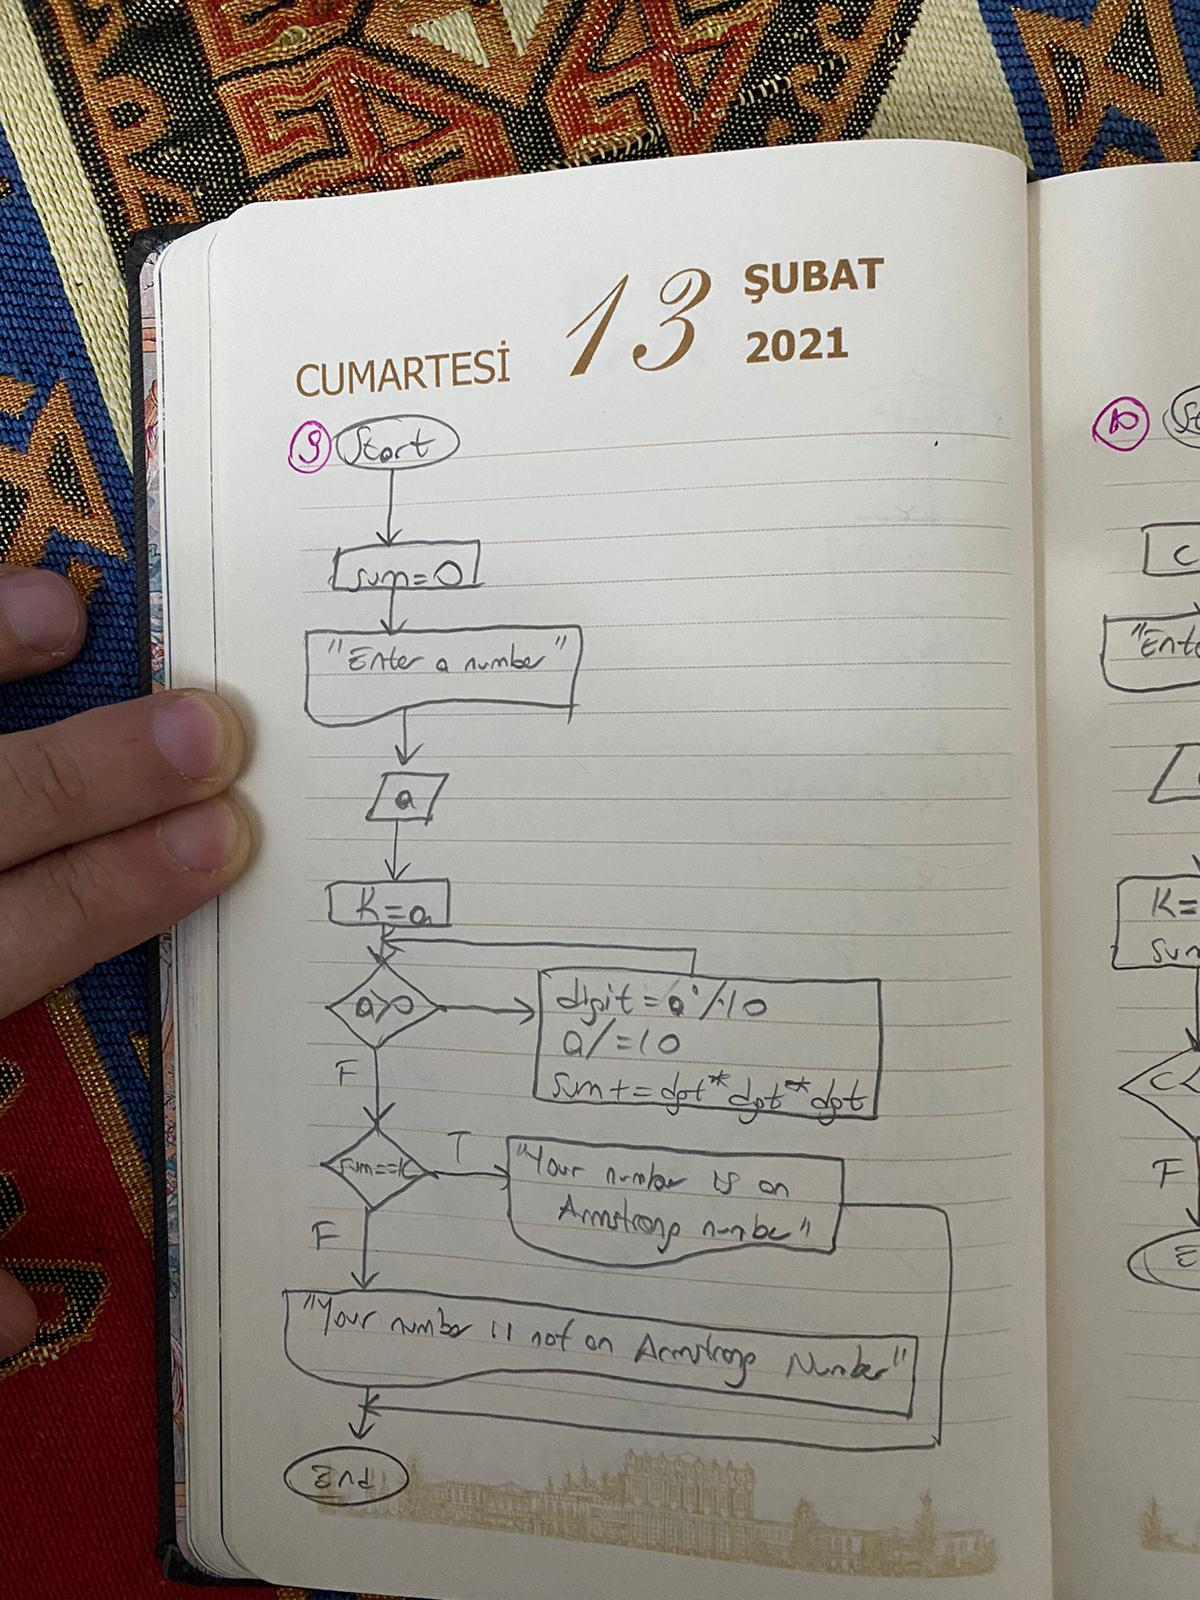 CUMARTESİ 13 ŞUBAT
2021
9 Start
sum=0
"Enter a number"
a
K=a
a>0
digit = a%10
a/=10
sum+=dgt*dgt*dgt
F
sum==K
T
"Your number is an
Armstrong number"
F
"Your number is not an Armstrong Number"
End
10 St
C
"Ente
K=
sum
C
F
E